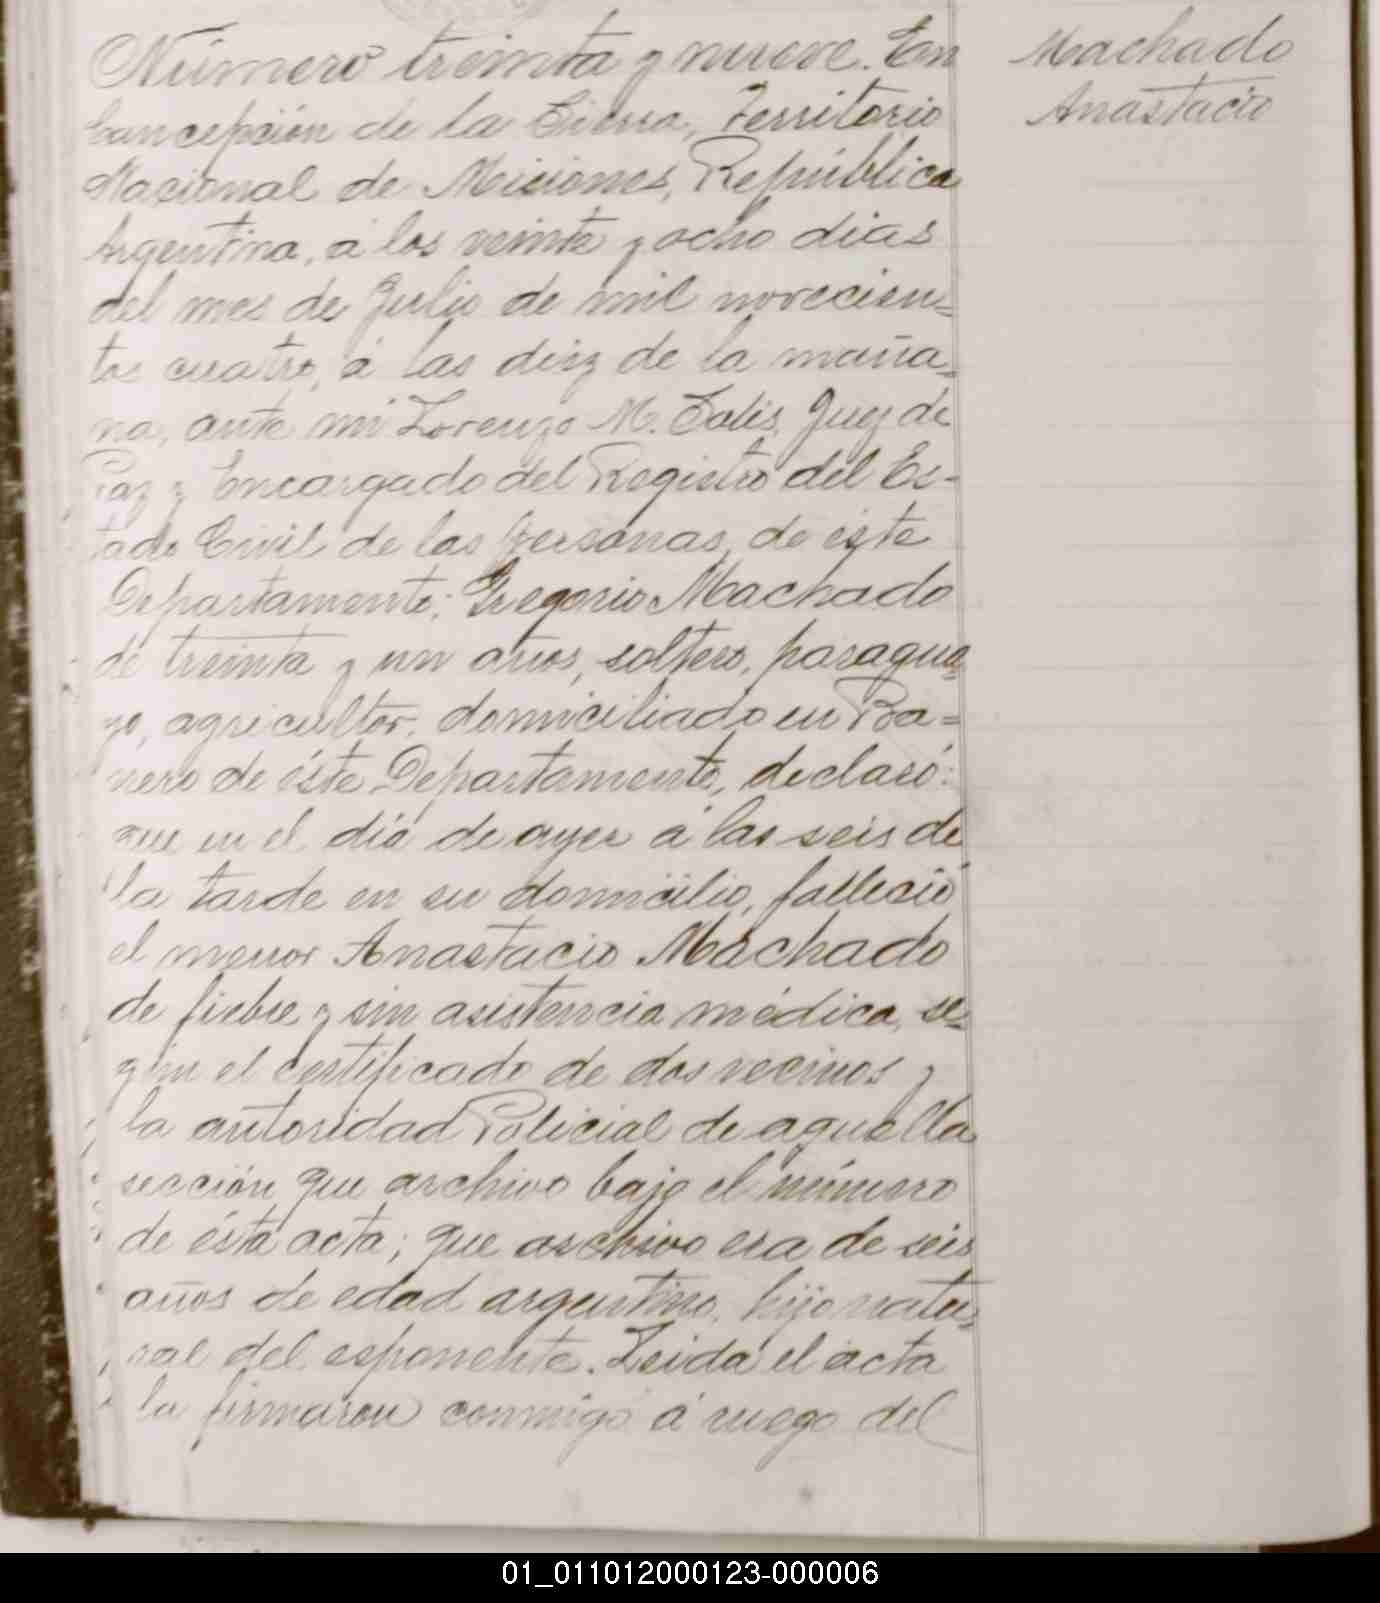 Número treinta y nueve. En
Concepción de la Sierra, Territorio
Nacional de Misiones, República
Argentina, á los veinte y ocho dias
del mes de Julio de mil novecien=
tos cuatro, á las diez de la maña=
na, ante mi Lorenzo M. Solis, Juez de
Paz y Encargado del Registro del Es-
tado Civil de las personas, de éste
Departamento; Gregorio Machado
de treinta y un años, soltero, paragua=
yo, agricultor, domiciliado en Ra=
nero de éste Departamento, declaró:
que en el dia de ayer á las seis de
la tarde en su domicilio, falleció
el menor Anastacio Machado
de fiebre y sin asistencia médica, se=
gún el certificado de dos vecinos y
la autoridad Policial de aquella
sección que archivo bajo el número
de ésta acta; que archivo era de seis
años de edad argentino, hijo natu=
ral del esponente. Leida el acta
la firmaron conmigo á ruego del
Machado
Anastacio
01_011012000123-000006